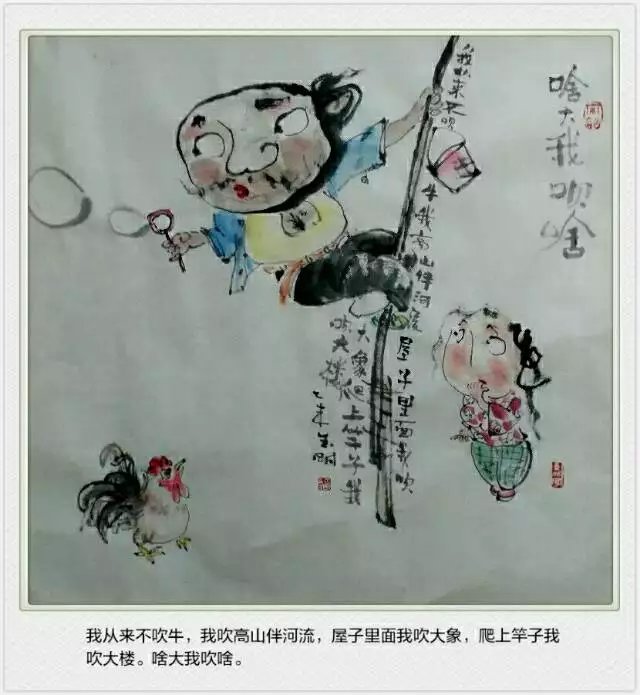 啥大我吹啥
我从来不吹
牛我高山伴河流
屋子里面我吹
大象爬上竿子我
吹大楼
乙未
我从来不吹牛，我吹高山伴河流，屋子里面我吹大象，爬上竿子我
吹大楼。啥大我吹啥。